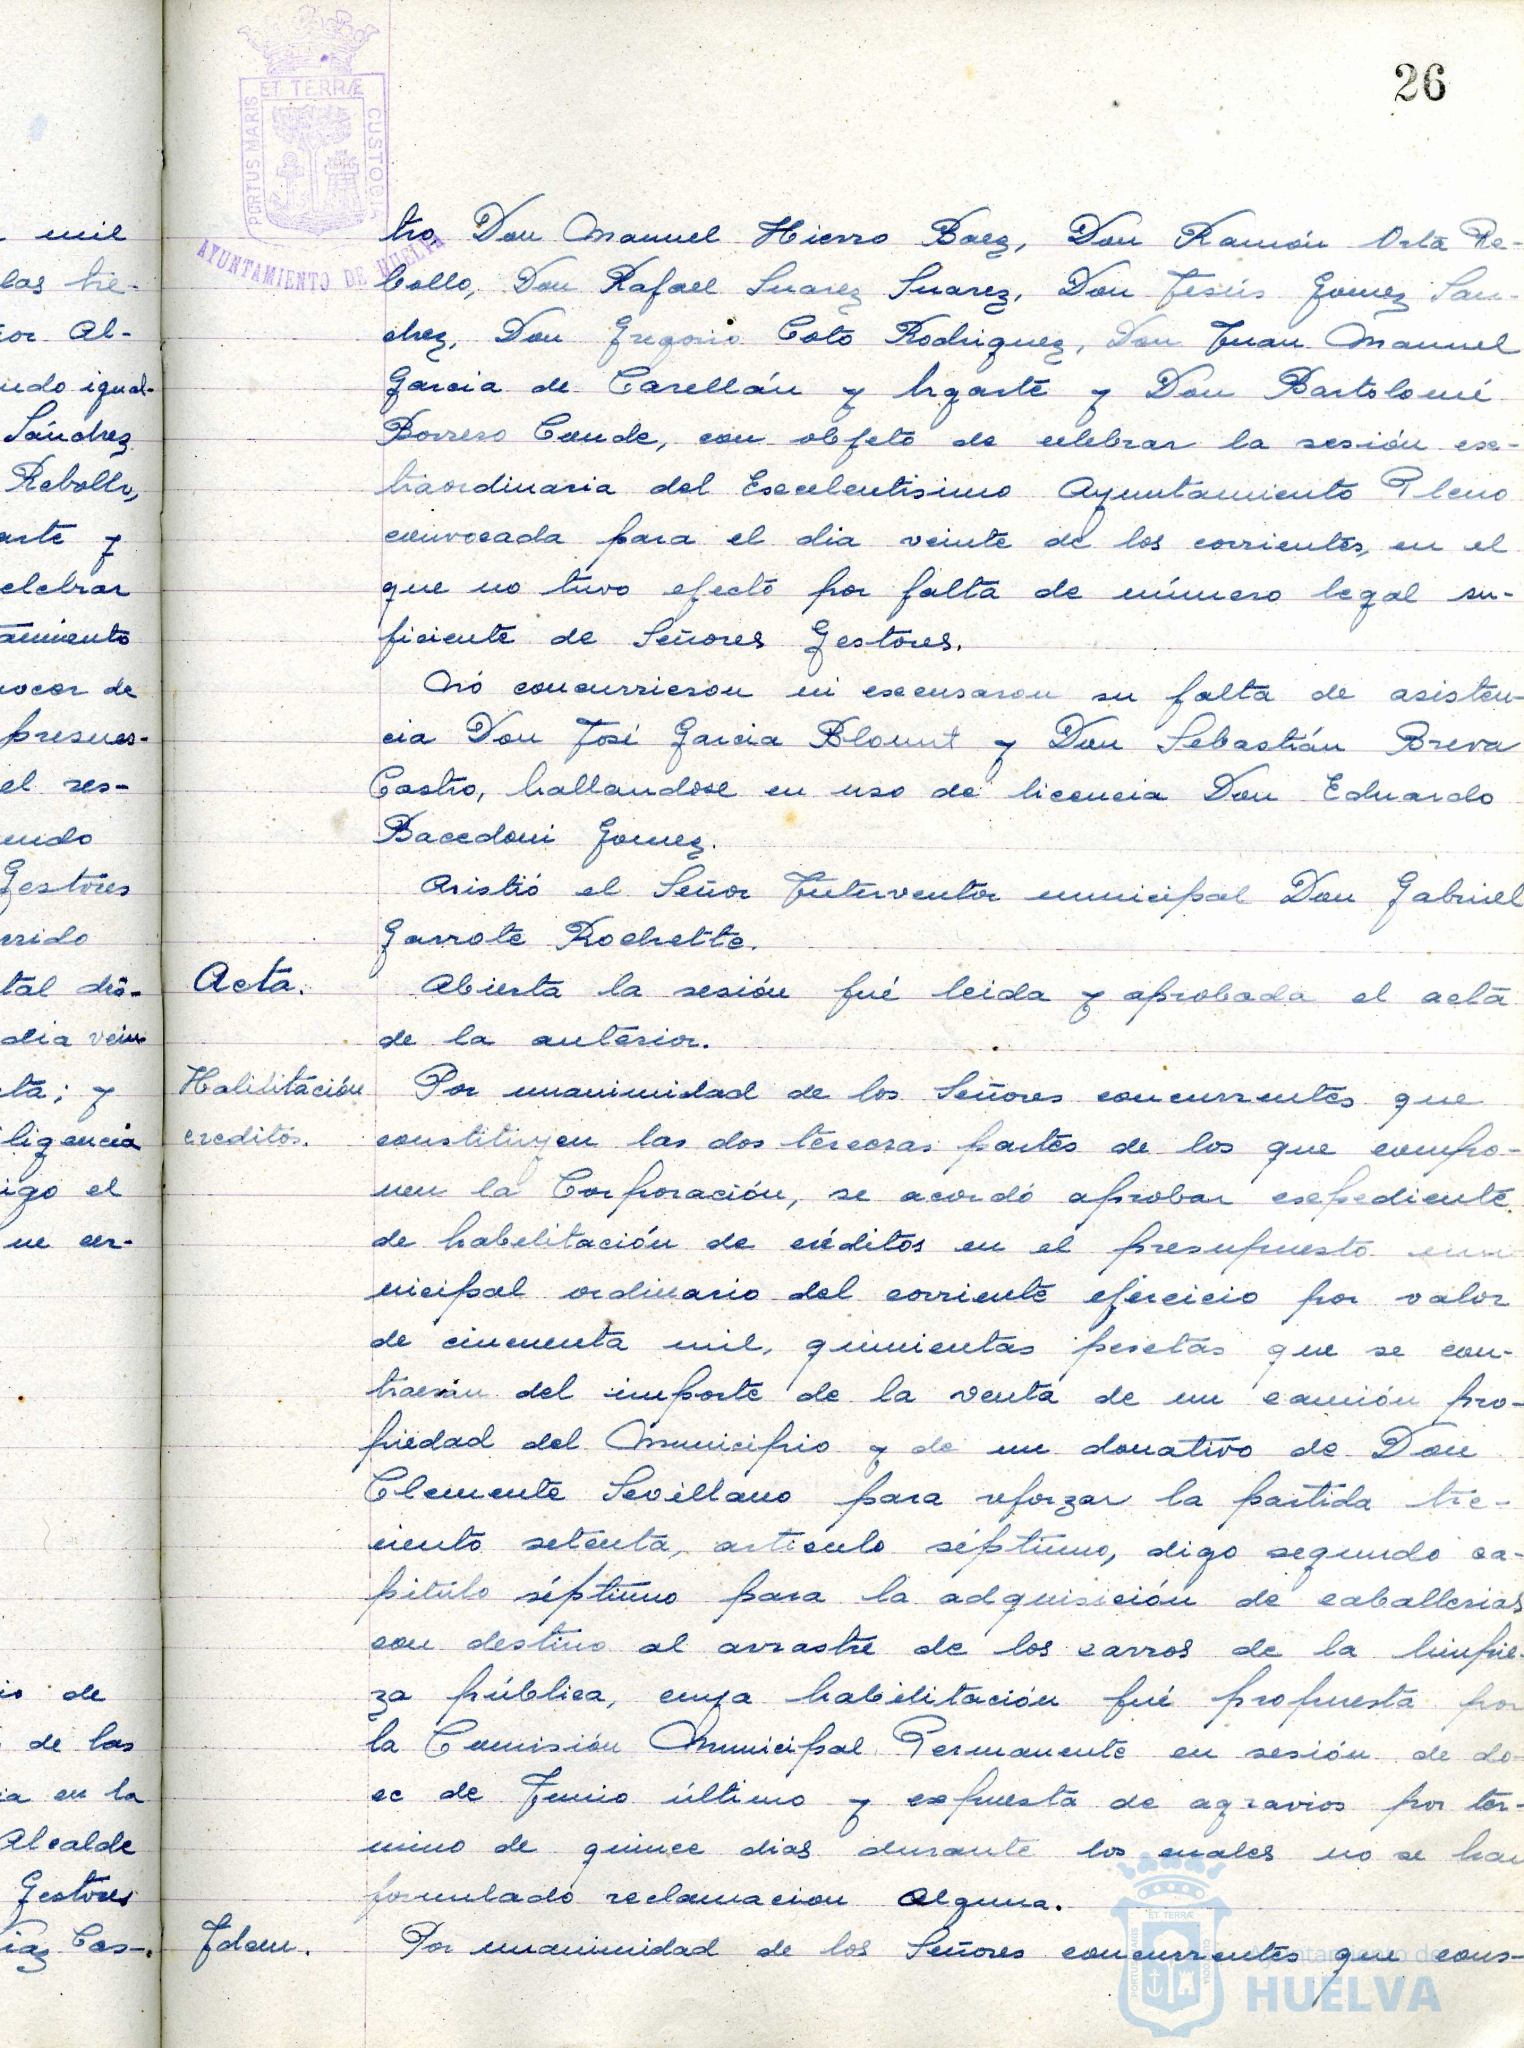 26
ET TERRÆ
PORTUS MARIS
CUSTODIA
AYUNTAMIENTO DE HUELVA
mil
las tre-
or Al-
ndo igual-
Sánchez
Rebollo,
arte y
elebrar
amiento
nocer de
presues-
el res-
endo
Gestores
rrido
tal dis-
dia vein
ta; y
ligencia
igo el
ue cer-
io de
de las
ia en la
Alcalde
Gestores
Diaz Cas-
tro, Don Manuel Hierro Baez, Don Ramón Orta Re-
bollo, Don Rafael Suarez Suarez, Don Jesús Gomez San-
chez, Don Gregorio Coto Rodriguez, Don Juan Manuel
Garcia de Carellán y Ugarte y Don Bartolomé
Borrero Conde, con objeto de celebrar la sesión ex-
traordinaria del Excelentisimo Ayuntamiento Pleno
convocada para el dia veinte de los corrientes, en el
que no tuvo efecto por falta de número legal su-
ficiente de Señores Gestores.
No concurrieron ni excusaron su falta de asisten-
cia Don José Garcia Blount y Don Sebastián Breva
Castro, hallandose en uso de licencia Don Eduardo
Bacedoni Gomez.
Asistió el Señor Interventor municipal Don Gabriel
Garrote Rochette.
Acta.
Abierta la sesión fué leida y aprobada el acta
de la anterior.
Habilitación
creditos.
Por unanimidad de los Señores concurrentes que
constituyen las dos terceras partes de los que compo-
nen la Corporación, se acordó aprobar expediente
de habilitación de créditos en el presupuesto mu
nicipal ordinario del corriente ejercicio por valor
de cincuenta mil, quinientas pesetas que se con-
traerán del importe de la venta de un camión pro-
piedad del Municipio y de un donativo de Don
Clemente Sevillano para reforzar la partida tre-
ciento setenta, articulo séptimo, digo segundo ca-
pitulo séptimo para la adquisición de caballerias
con destino al arrastre de los carros de la limpie-
za pública, cuya habilitación fué propuesta por
la Comisión Municipal Permanente en sesión de do-
ce de Junio último y expuesta de agravios por tér-
mino de quince dias durante los cuales no se han
formulado reclamacion alguna.
Idem.
Por unanimidad de los Señores concurrentes que cons-
Ayuntamiento de
HUELVA